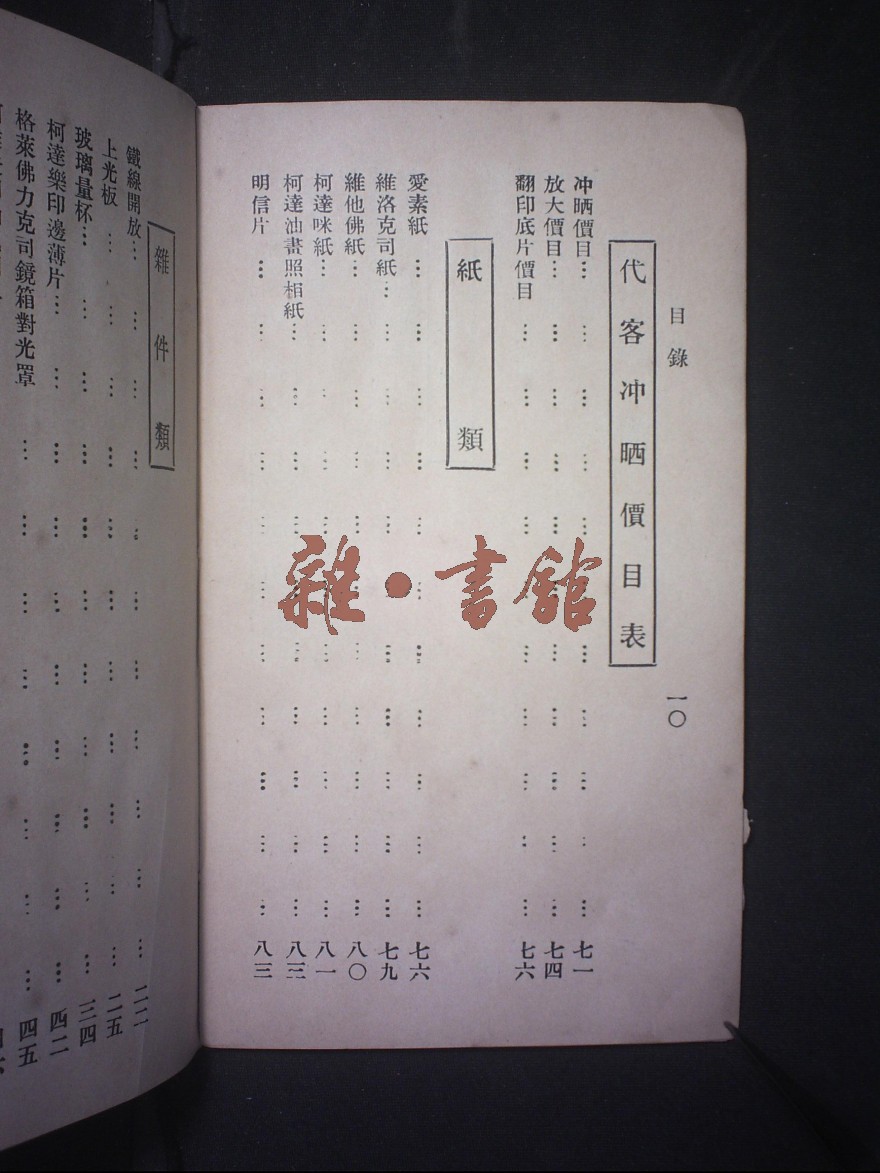 目錄 一〇
代客冲晒價目表
冲晒價目 七一
放大價目 七四
翻印底片價目 七六
紙類
愛素紙 七六
維洛克司紙 七九
維他佛紙 八〇
柯達咪紙 八一
柯達油畫照相紙 八三
明信片 八三
雜件類
鐵線開放 二二
上光板 二五
玻璃量杯 三四
柯達樂印邊薄片 四二
格萊佛力克司鏡箱對光罩 四五
雜·書館